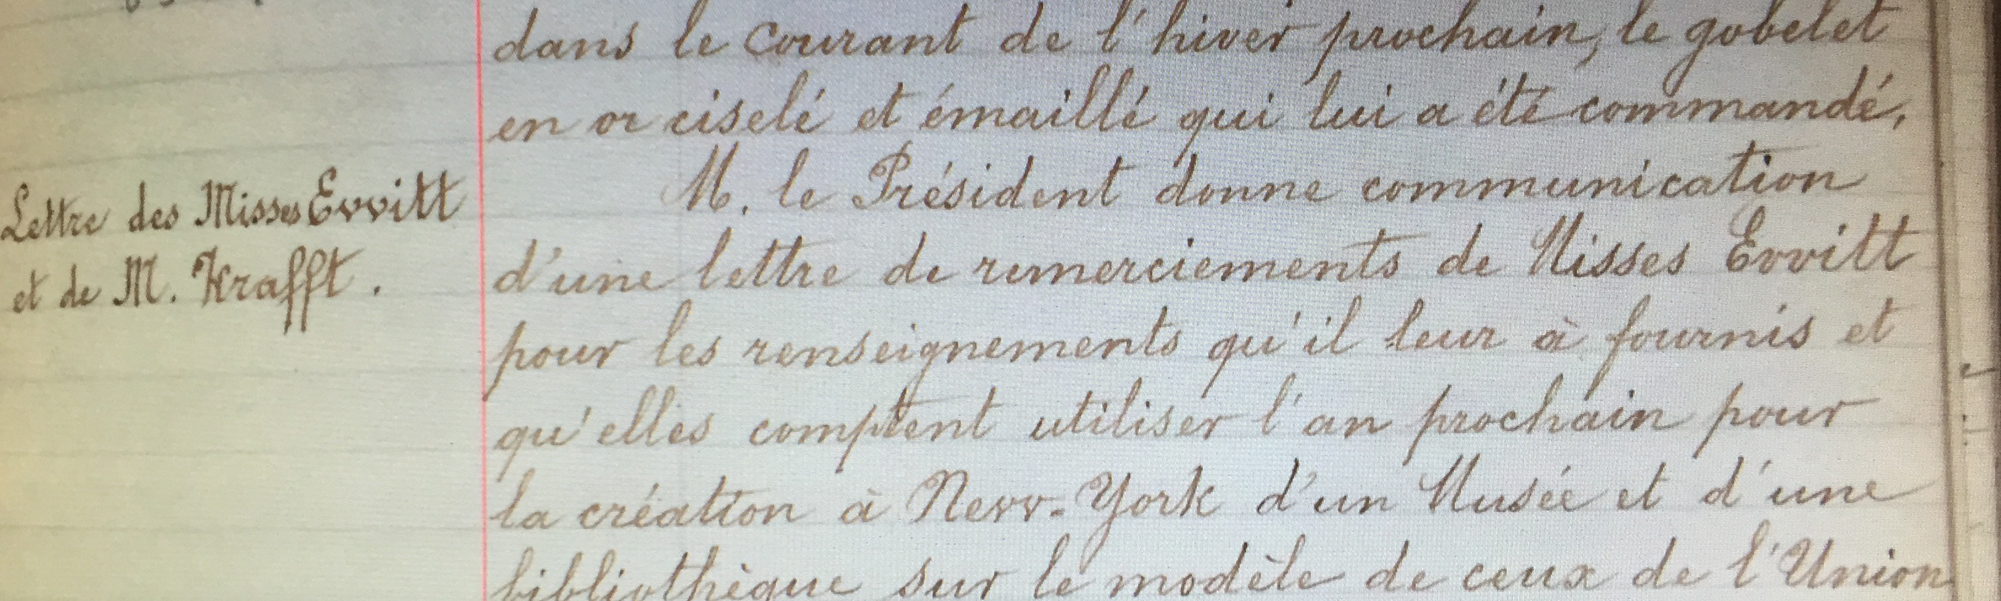 dans le courant de l'hiver prochain, le gobelet
en or ciselé et émaillé qui lui a été commandé.
Lettre des Misses Evvitt
et de M. Krafft.
M. le Président donne communication
d'une lettre de remerciements de Misses Evvitt
pour les renseignements qu'il leur à fournis et
qu'elles comptent utiliser l'an prochain pour
la création à New-York d'un Musée et d'une
bibliothèque sur le modèle de ceux de l'Union